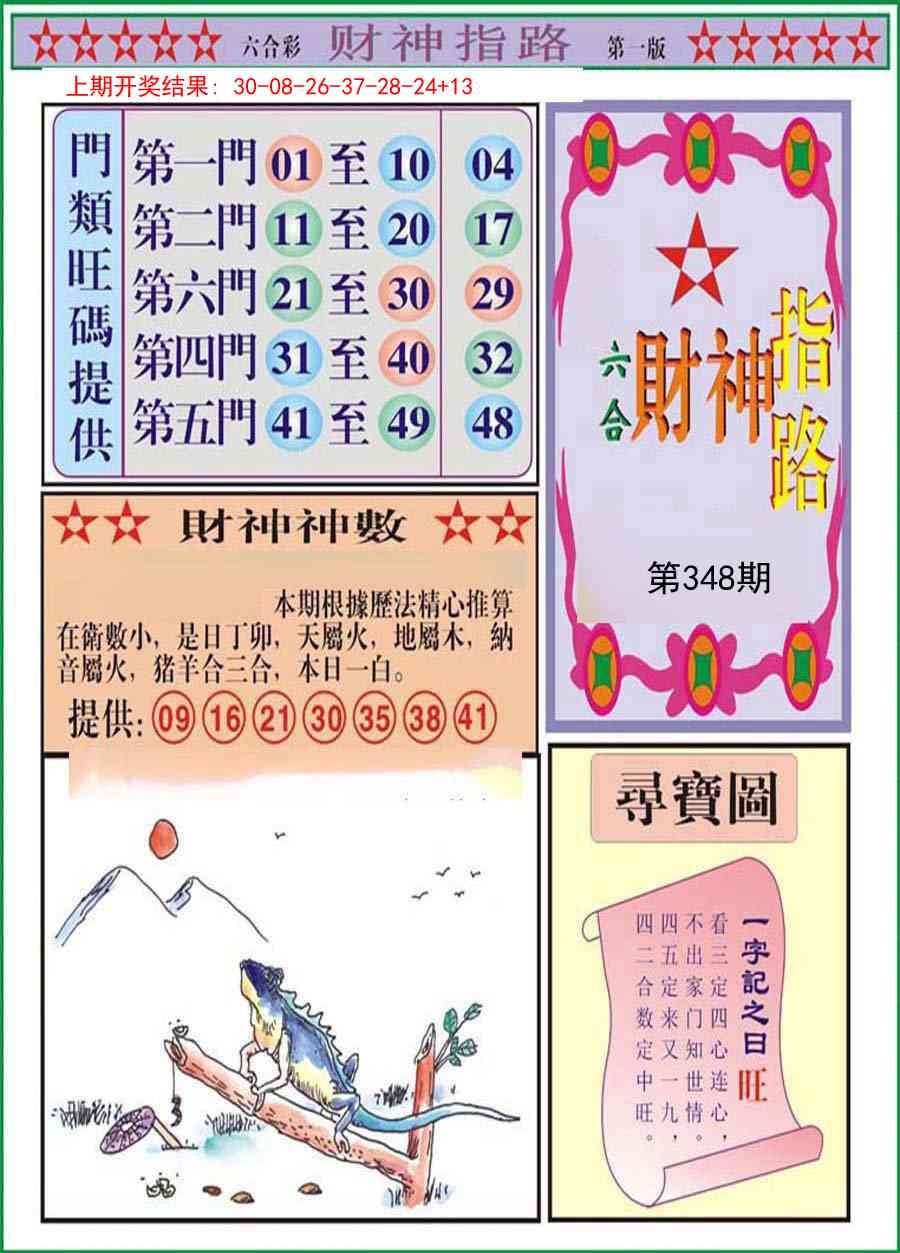 六合彩 财神指路 第一版
上期开奖结果: 30-08-26-37-28-24+13
門類旺碼提供
第一門 01 至 10 04
第二門 11 至 20 17
第六門 21 至 30 29
第四門 31 至 40 32
第五門 41 至 49 48
六合
財神
指路
第348期
財神神數
本期根據歷法精心推算
在衛數小，是日丁卯，天屬火，地屬木，納
音屬火，猪羊合三合，本日一白。
提供: 09 16 21 30 35 38 41
尋寶圖
一字記之曰 旺
看三定四心连心，
不出家门知世情。
四五定来又一九，
四二合数定中旺。